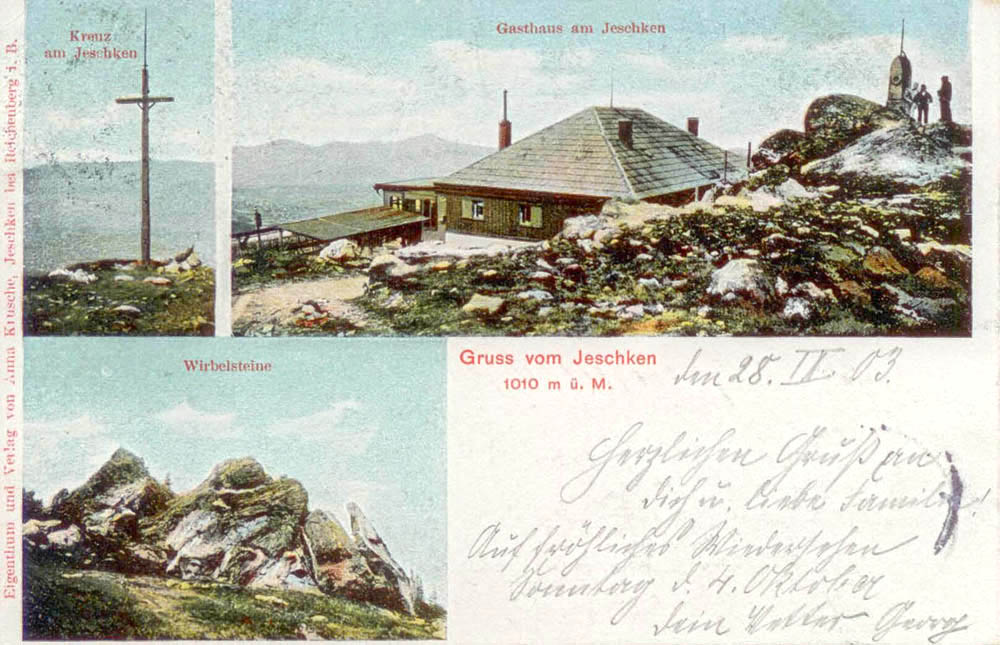 Eigenthum und Verlag von Anna Krusche, Jeschken bei Reichenberg i. B.
Kreuz
am Jeschken
Gasthaus am Jeschken
Wirbelsteine
Gruss vom Jeschken
1010 m ü. M.
den 28. IX. 03.
Herzlichen Gruß an
dich u. liebe Familie!
Auf fröhliches Wiedersehen
Sonntag d. 4. Oktober
dein Vetter Georg